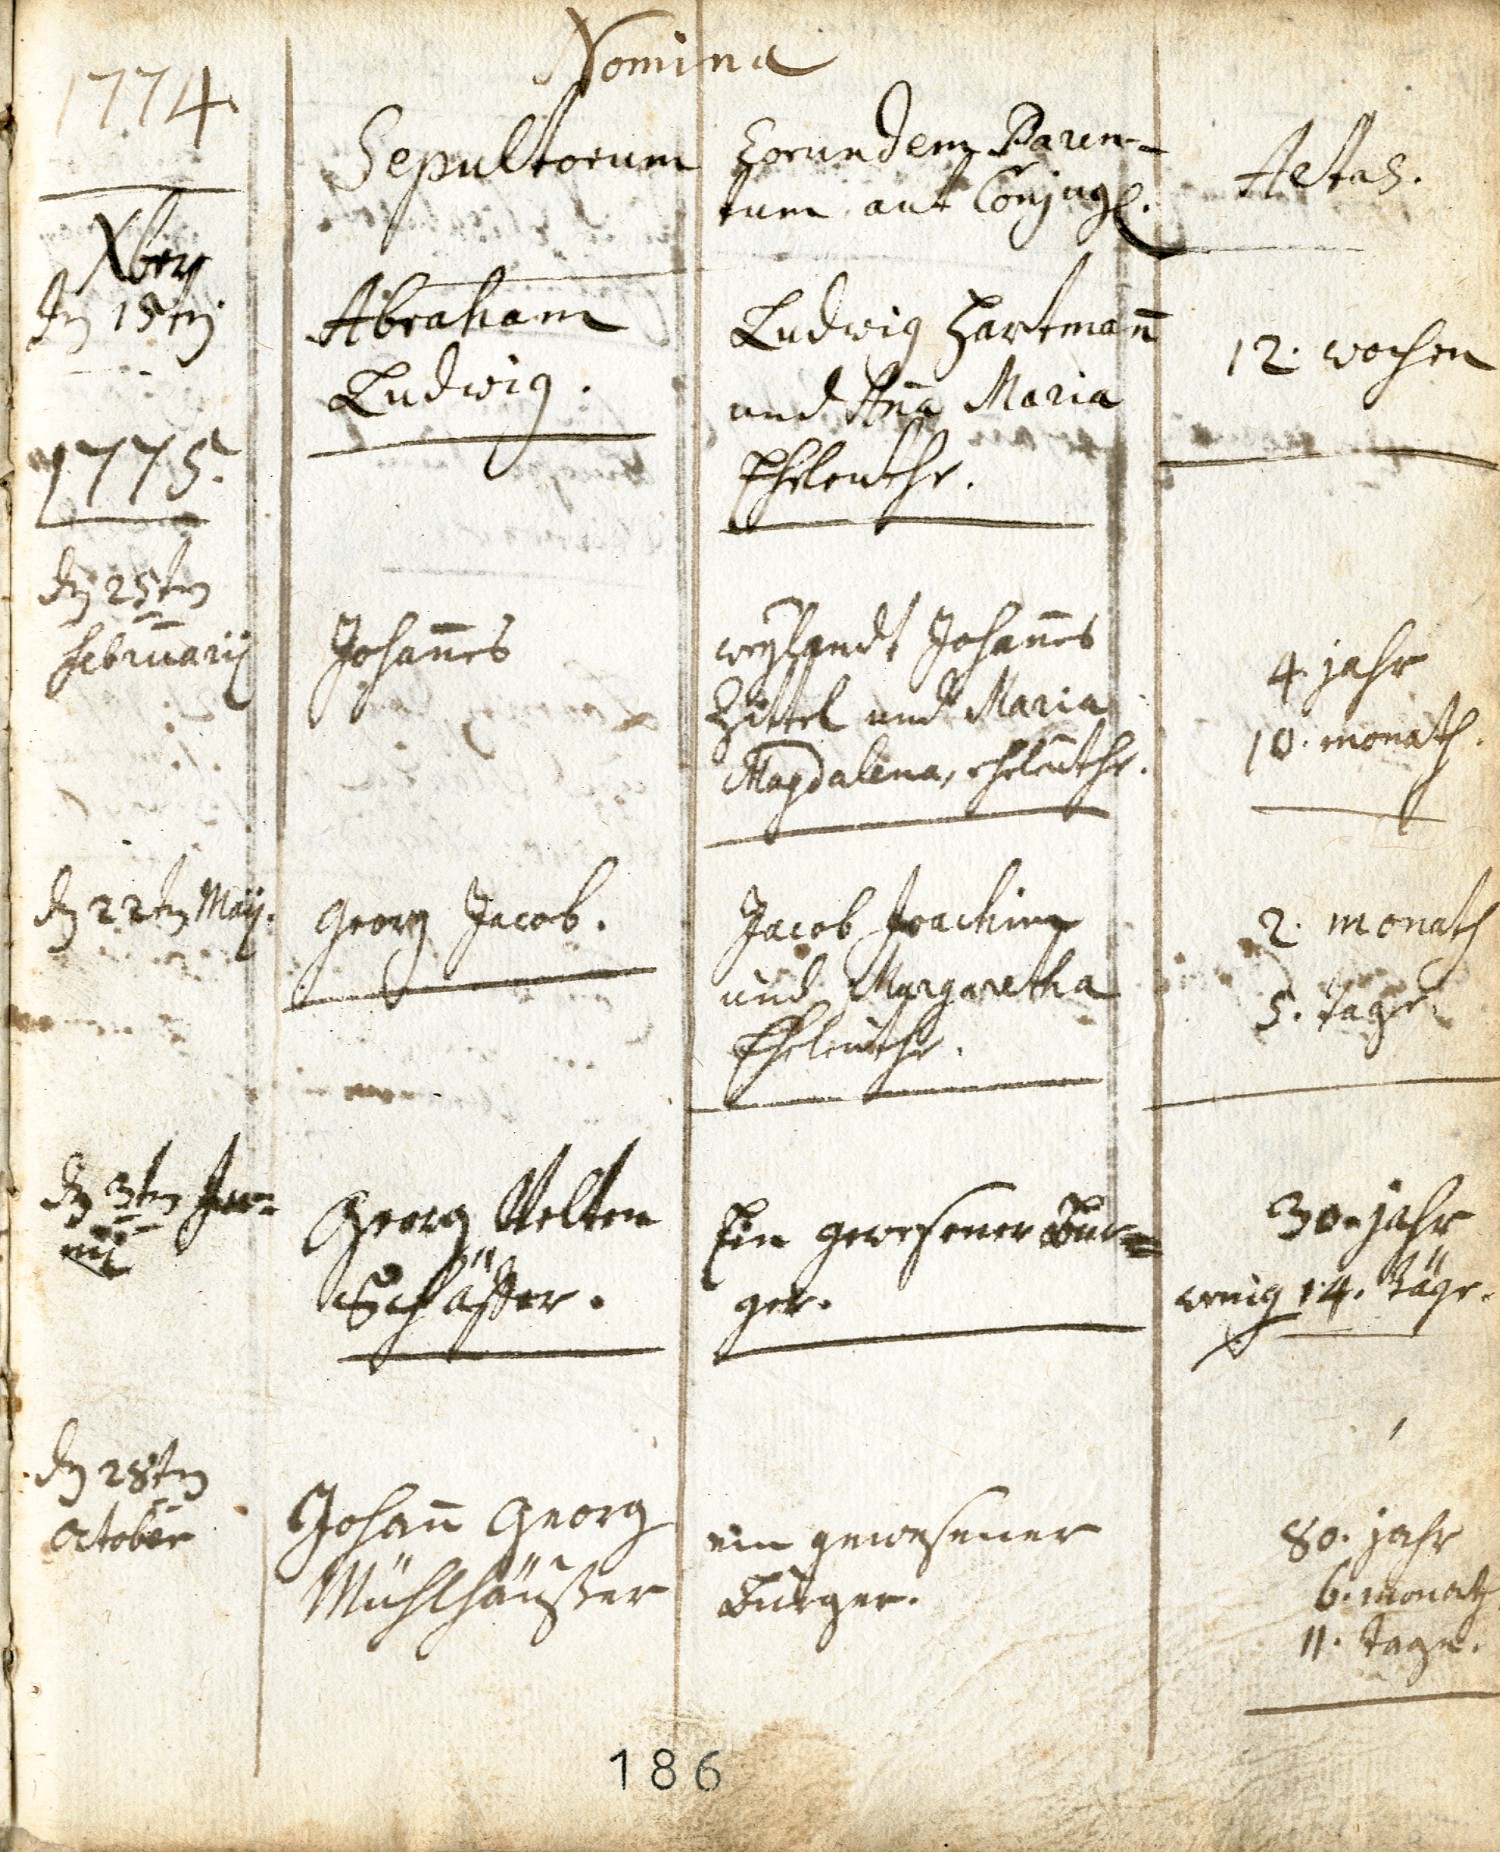 Nomina
1774.
Sepultorum
Eorundem Paren-
tum aut Conjug.
Aetas.
Xbris
den 15ten
Abraham
Ludwig.
Ludwig Hartmañ
und Añа Maria
Eheleuthe.
12. wochen
1775.
den 25ten
Februarij
Johañes
weylandt Johañes
Zittel und Maria
Magdalena, eheleuthe.
4. jahr
10. monath.
den 22ten Maij.
Georg Jacob.
Jacob Joachim
und Margaretha
Eheleuthe.
2. monath
5. tage
den 3ten Ju=
nij
Georg Velten
Schäffer.
Ein gewesener Bur=
ger.
30. jahr
wenig 14. täge.
den 28ten
October
Johañ Georg
Mühlhäußer
ein gewesener
Burger.
80. jahr
6. monath
11. tage.
186